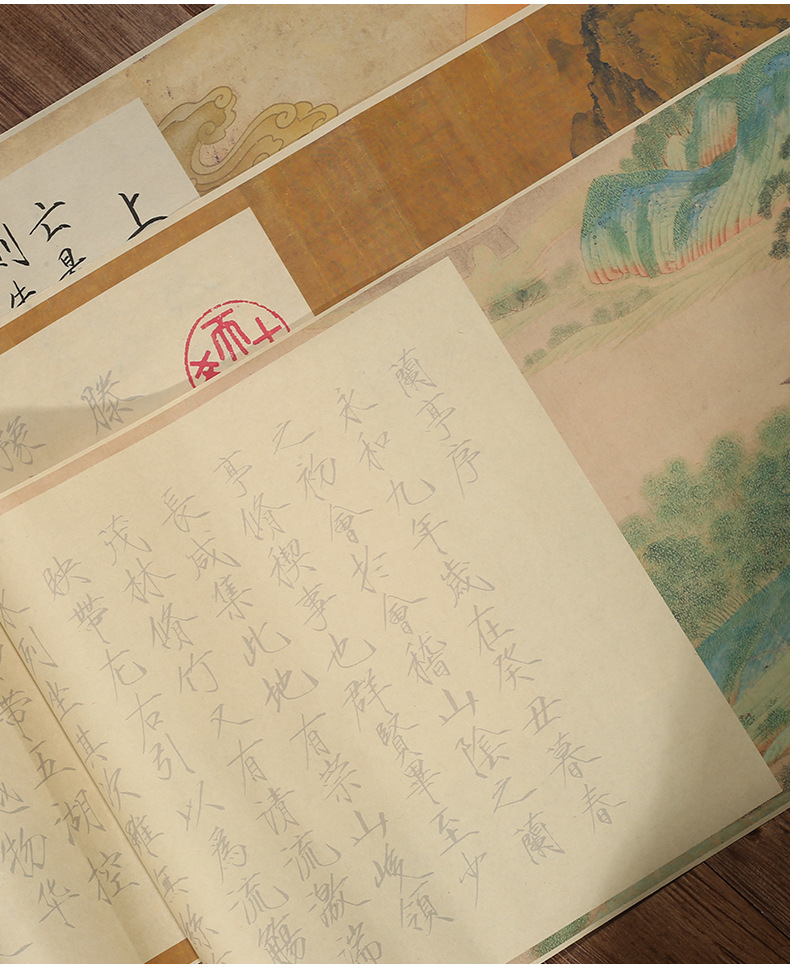 蘭亭序
永和九年歲在癸丑暮春
之初會於會稽山陰之蘭
亭脩禊事也群賢畢至少
長咸集此地有崇山峻領
茂林脩竹又有清流激湍
映帶左右引以為流觴
水列坐其次雖無絲
帶五湖控
物华
滕
豫
上